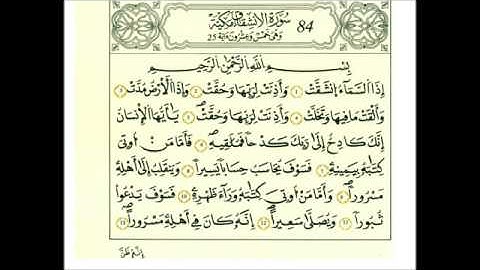 سُورَةُ الْاِنْشِقَاقِ مَكِّيَّة 84
وَهِيَ خَمْسٌ وَعِشْرُونَ ءَايَة 25
بِسْمِ اللَّهِ الرَّحْمَٰنِ الرَّحِيمِ
إِذَا السَّمَاءُ انْشَقَّتْ ١ وَأَذِنَتْ لِرَبِّهَا وَحُقَّتْ ٢ وَإِذَا الْأَرْضُ مُدَّتْ ٣
وَأَلْقَتْ مَا فِيهَا وَتَخَلَّتْ ٤ وَأَذِنَتْ لِرَبِّهَا وَحُقَّتْ ٥ يَٰأَيُّهَا الْإِنْسَانُ
إِنَّكَ كَادِحٌ إِلَىٰ رَبِّكَ كَدْحًا فَمُلَٰقِيهِ ٦ فَأَمَّا مَنْ أُوتِيَ
كِتَٰبَهُ بِيَمِينِهِ ٧ فَسَوْفَ يُحَاسَبُ حِسَابًا يَسِيرًا ٨ وَيَنْقَلِبُ إِلَىٰ أَهْلِهِ
مَسْرُورًا ٩ وَأَمَّا مَنْ أُوتِيَ كِتَٰبَهُ وَرَاءَ ظَهْرِهِ ١٠ فَسَوْفَ يَدْعُوا
ثُبُورًا ١١ وَيَصْلَىٰ سَعِيرًا ١٢ إِنَّهُ كَانَ فِي أَهْلِهِ مَسْرُورًا ١٣
إِنَّهُ ظَنَّ